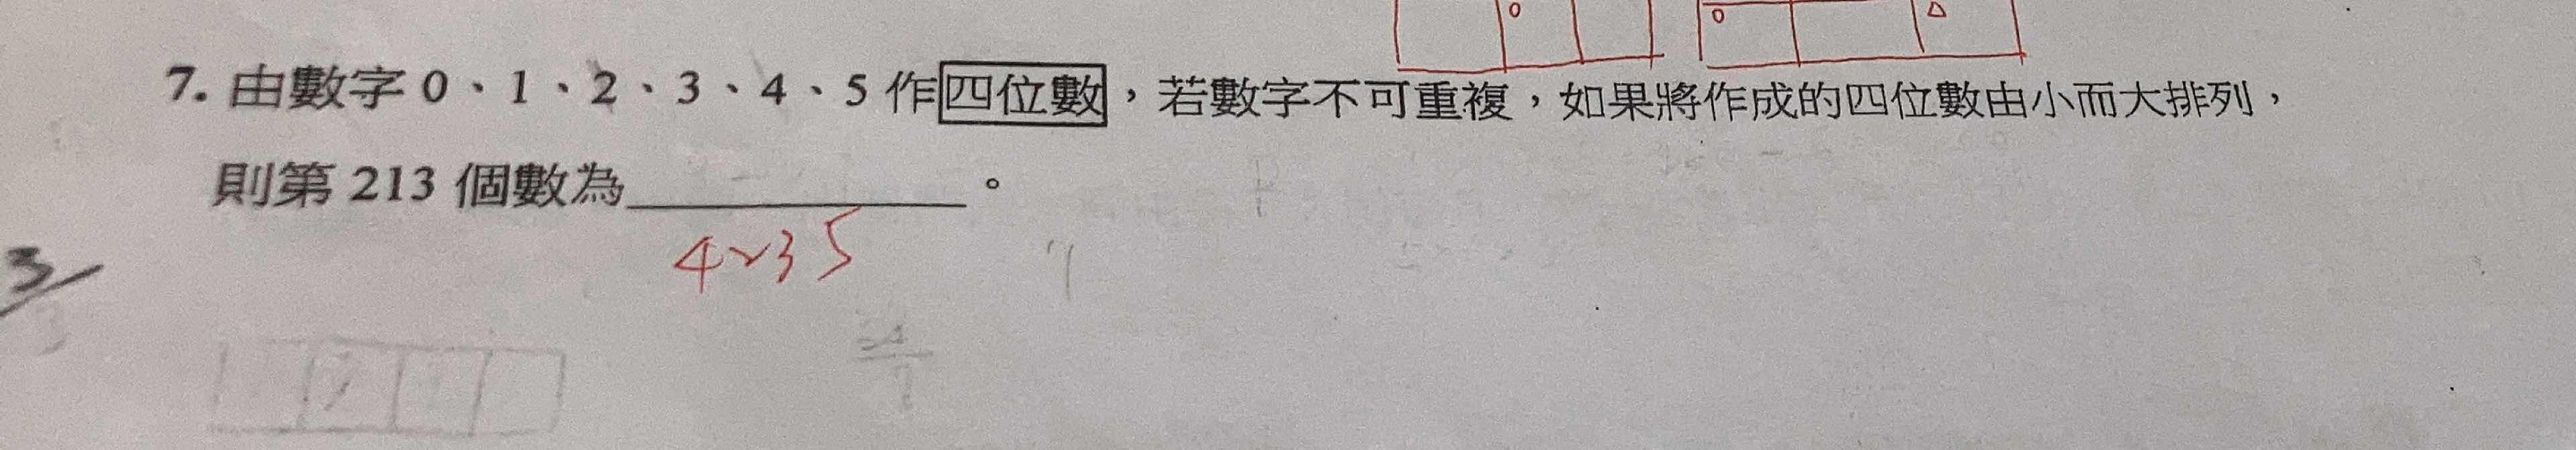 7. 由數字 0、1、2、3、4、5 作四位數，若數字不可重複，如果將作成的四位數由小而大排列，
則第 213 個數為＿＿＿＿＿＿。
4235
3